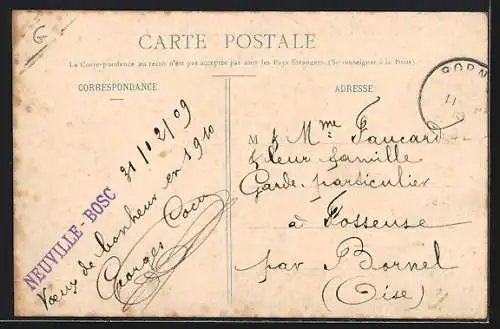 G
CARTE POSTALE
La Correspondance au recto n'est pas acceptée par tous les Pays Étrangers. (Se renseigner à la Poste).
CORRESPONDANCE
ADRESSE
31/12/09
NEUVILLE-BOSC
Vœux de bonheur en 1910
Georges
BORN
M & Mme Faucard
& leur famille
Garde particulier
à Fosseuse
par Bornel
(Oise)